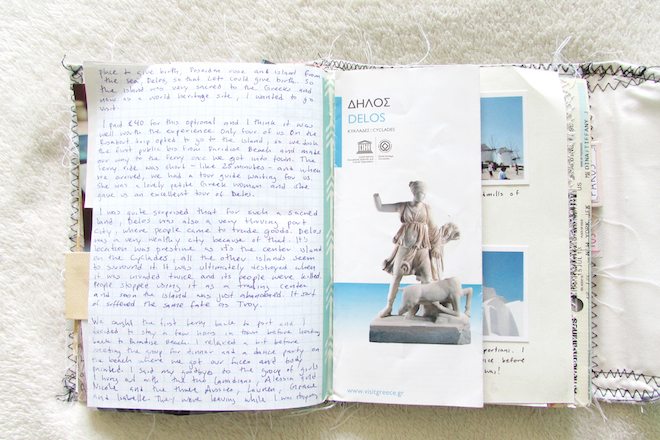 place to give birth, Poseidon rose and island from
the sea, Delos, so that Leto could give birth. So
the island was very sacred to the Greeks and
now as a world heritage site, I wanted to go
visit.
I paid €40 for this optional and I think it was
well worth the experience. Only four of us on the
Busabout trip opted to go to the island, so we took
the local public bus from Paradise Beach and made
our way to the ferry once we got into town. The
ferry ride was short - like 25 minutes - and when
we arrived, we had a tour guide waiting for us.
She was a lovely petite Greek woman and she
gave us an excellent tour of Delos.
I was quite surprised that for such a sacred
land, Delos was also a very thriving port
city, where people came to trade goods. Delos
was a very wealthy city because of that. It's
location was prestine as it's the center island
on the Cyclades; all the other islands seem
to surround it. It was ultimately destroyed when
it was invaded twice and its people were killed.
People stopped using it as a trading center
and soon the island was just abandoned. It sort
of suffered the same fate as Troy.
We caught the first ferry back to port and I
decided to stay a few hours in town before heading
back to Paradise Beach. I relaxed a bit before
meeting the group for dinner and a dance party on
the beach where we got our faces and body
painted. I said my goodbyes to the group of girls
I hung out with: the two Canadians, Alessia and
Nicole and the three Aussies, Lauren, Grace
and Isabelle. They were leaving while I was staying
ΔΗΛΟΣ
DELOS
ΚΥΚΛΑΔΕΣ / CYCLADES
www.visitgreece.gr
dmills of
portions. I
nce before
was!
MEDINA | TIFFANY
NEW YORK